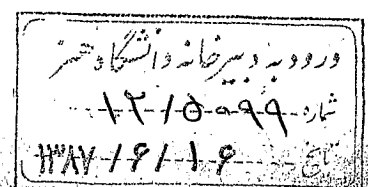 ورود به دبیرخانه دانشگاه هنر
شماره ۱۲/۵۰۹۹
تاریخ ۱۳۸۷/۶/۱۶